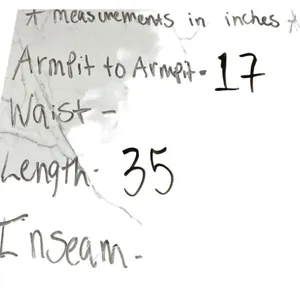 * measurements in inches *
Armpit to Armpit - 17
Waist -
Length - 35
Inseam -